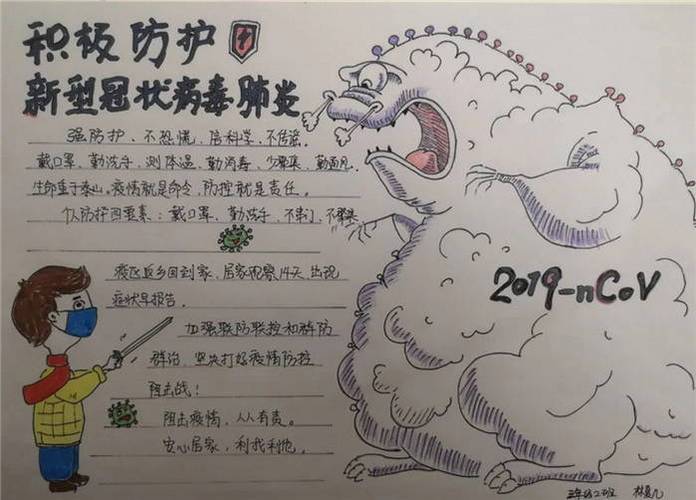 积极防护
新型冠状病毒肺炎
强防护、不恐慌、信科学、不传谣。
戴口罩、勤洗手、测体温、勤消毒、少聚集、勤通风。
生命重于泰山。疫情就是命令，防控就是责任。
个人防护四要素：戴口罩、勤洗手、不串门、不聚集
疫区返乡回到家，居家观察14天，出现
症状早报告。
加强联防联控和群防
群治，坚决打好疫情防控
阻击战！
阻击疫情，人人有责。
安心居家，利我利他。
2019-nCoV